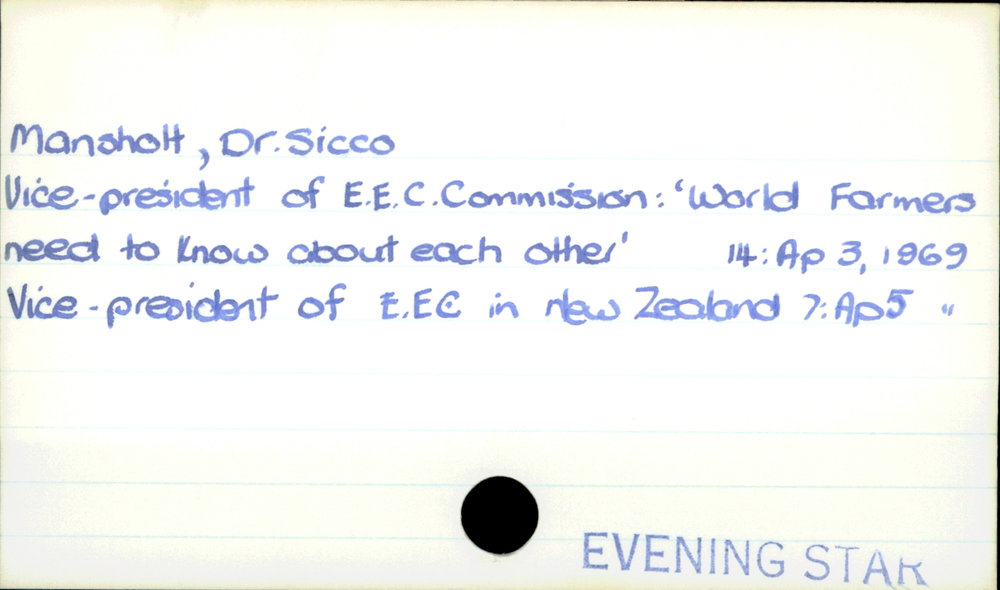 Mansholt, Dr. Sicco
Vice-president of E.E.C. Commission: 'World Farmers
need to know about each other' 14: Ap 3, 1969
Vice-president of E.EC in New Zealand 7: Ap 5 "
EVENING STAR